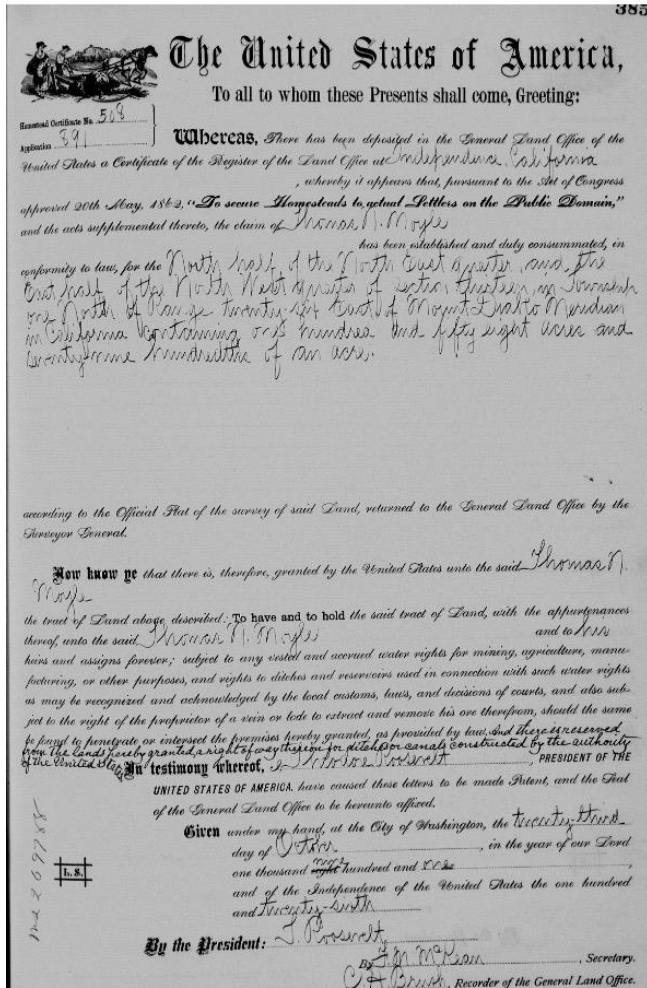 385
The United States of America,
To all to whom these Presents shall come, Greeting:
Homestead Certificate No. 508
Application 891
Whereas, There has been deposited in the General Land Office of the
United States a Certificate of the Register of the Land Office at Independence, California
, whereby it appears that, pursuant to the Act of Congress
approved 20th May, 1862, "To secure Homesteads to actual Settlers on the Public Domain,"
and the acts supplemental thereto, the claim of Thomas N. Moyle
has been established and duly consummated, in
conformity to law, for the North half of the North East quarter, and the
East half of the North West quarter of section thirteen, in Township
one North of Range twenty-six East of Mount Diablo Meridian
in California containing one hundred and fifty eight acres and
seventy nine hundredths of an acre.
according to the Official Plat of the survey of said Land, returned to the General Land Office by the
Surveyor General.
Now know ye that there is, therefore, granted by the United States unto the said Thomas N.
Moyle
the tract of Land above described: To have and to hold the said tract of Land, with the appurtenances
thereof, unto the said Thomas N. Moyle and to his
heirs and assigns forever; subject to any vested and accrued water rights for mining, agriculture, manu-
facturing, or other purposes, and rights to ditches and reservoirs used in connection with such water rights
as may be recognized and acknowledged by the local customs, laws, and decisions of courts, and also sub-
ject to the right of the proprietor of a vein or lode to extract and remove his ore therefrom, should the same
be found to penetrate or intersect the premises hereby granted, as provided by law. And there is reserved
from the lands hereby granted, a right of way thereon for ditches or canals constructed by the authority
of the United States
In testimony whereof, I, Theodore Roosevelt, PRESIDENT OF THE
UNITED STATES OF AMERICA, have caused these letters to be made Patent, and the Seal
of the General Land Office to be hereunto affixed.
Given under my hand, at the City of Washington, the twenty-third
day of October, in the year of our Lord
one thousand eight nine hundred and one,
and of the Independence of the United States the one hundred
and twenty-sixth
L.S.
By the President: T. Roosevelt
By F. M. McKean, Secretary.
C. H. Brush, Recorder of the General Land Office.